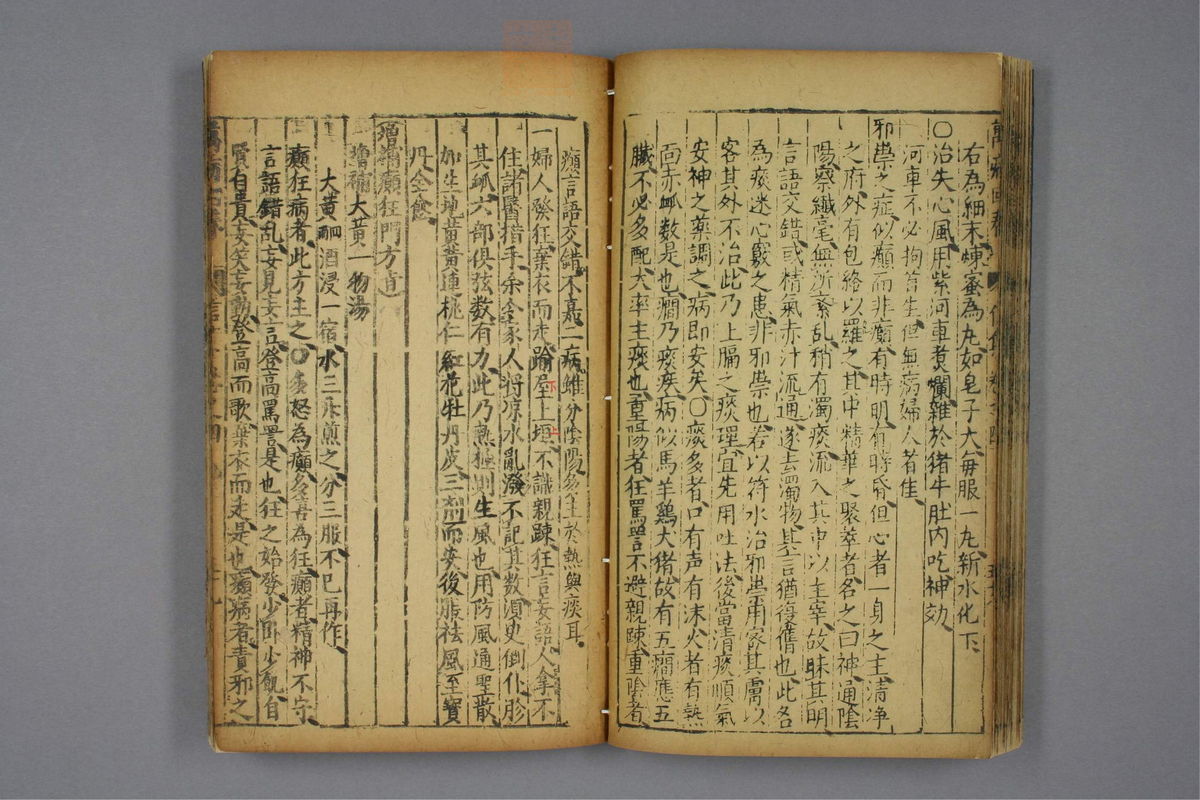 右為細末煉蜜為丸如皂子大每服一丸新水化下
○治失心風用紫河車煮爛雜於猪牛肚内吃神効
河車不必拘首生但無病婦人者佳
邪祟之症似癲而非癲有時明有時昏但心者一身之主清净
之府外有包絡以羅之其中精華之聚萃者名之曰神通陰
陽察纖毫無所紊乱稍有濁痰流入其中以主宰故昧其明
言語交錯或精氣赤汁流通遂去濁物其言猶復舊也此各
為痰迷心竅之患非邪祟也若以符水治邪祟用客其膚以
客其外不治此乃上膈之痰理宜先用吐法後當清痰順氣
安神之藥調之病即安矣○痰多者口有声有沫火者有熱
面赤脉数是也癎乃痰疾病似馬羊鷄犬猪故有五癎應五
臓不必多配大率主痰也重陽者狂罵詈不避親踈重陰者
癲言語交錯不嘉二病雖分陰陽多主於熱與痰耳
一婦人發狂棄衣而走踰屋上垣不識親踈狂言妄語人拿不
住諸醫措手余令家人将凉水亂潑不記其数須臾倒仆胗
其脉六部俱弦数有力此乃熱極則生風也用防風通聖散
加生地黄黄連桃仁紅花牡丹皮三劑而安後服祛風至寶
丹全愈
增補癲狂門方
增補大黄一物湯
大黄酒浸一宿水三斤煎之分三服不已再作
癲狂病者此方主之○多怒為癲多喜為狂癲者精神不守
言語錯乱妄見妄言登高罵詈是也狂之始發少卧少飢自
賢自貴妄笑妄動登高而歌棄衣而走是也癲病者責邪之